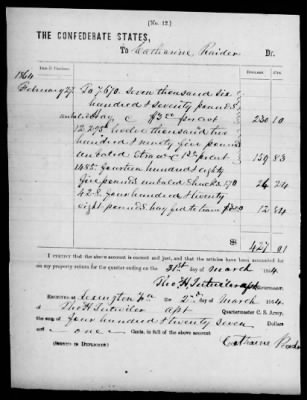 [No. 12.]
THE CONFEDERATE STATES,
To Catharine Raider Dr.
Date of Purchase. Dollars. Cts.
1864
February 27 To 7,670. Seven thousand six
hundred & seventy pounds
unbaled Hay @ $3.00 pr cwt 230 10
12.295 twelve thousand two
hundred & ninety five pounds
unbaled Straw @ 1.30 prcwt 159 83
1485. fourteen hundred & eighty
five pounds unbaled Shucks 26 24
428 four hundred & twenty
eight pounds hay fed to team 12 84
427 01
I certify that the above account is correct and just, and that the articles have been accounted for
on my property return for the quarter ending on the 31st day of March 1864.
Tho. H. Tutwiler apt
Quartermaster.
Received at Lexington Va 2nd day of March 1864,
of Tho. H. Tutwiler apt Quartermaster C. S. Army,
the sum of four hundred & twenty seven Dollars
and one Cents, in full of the above account
(Signed in Duplicate.) Catharine Raider